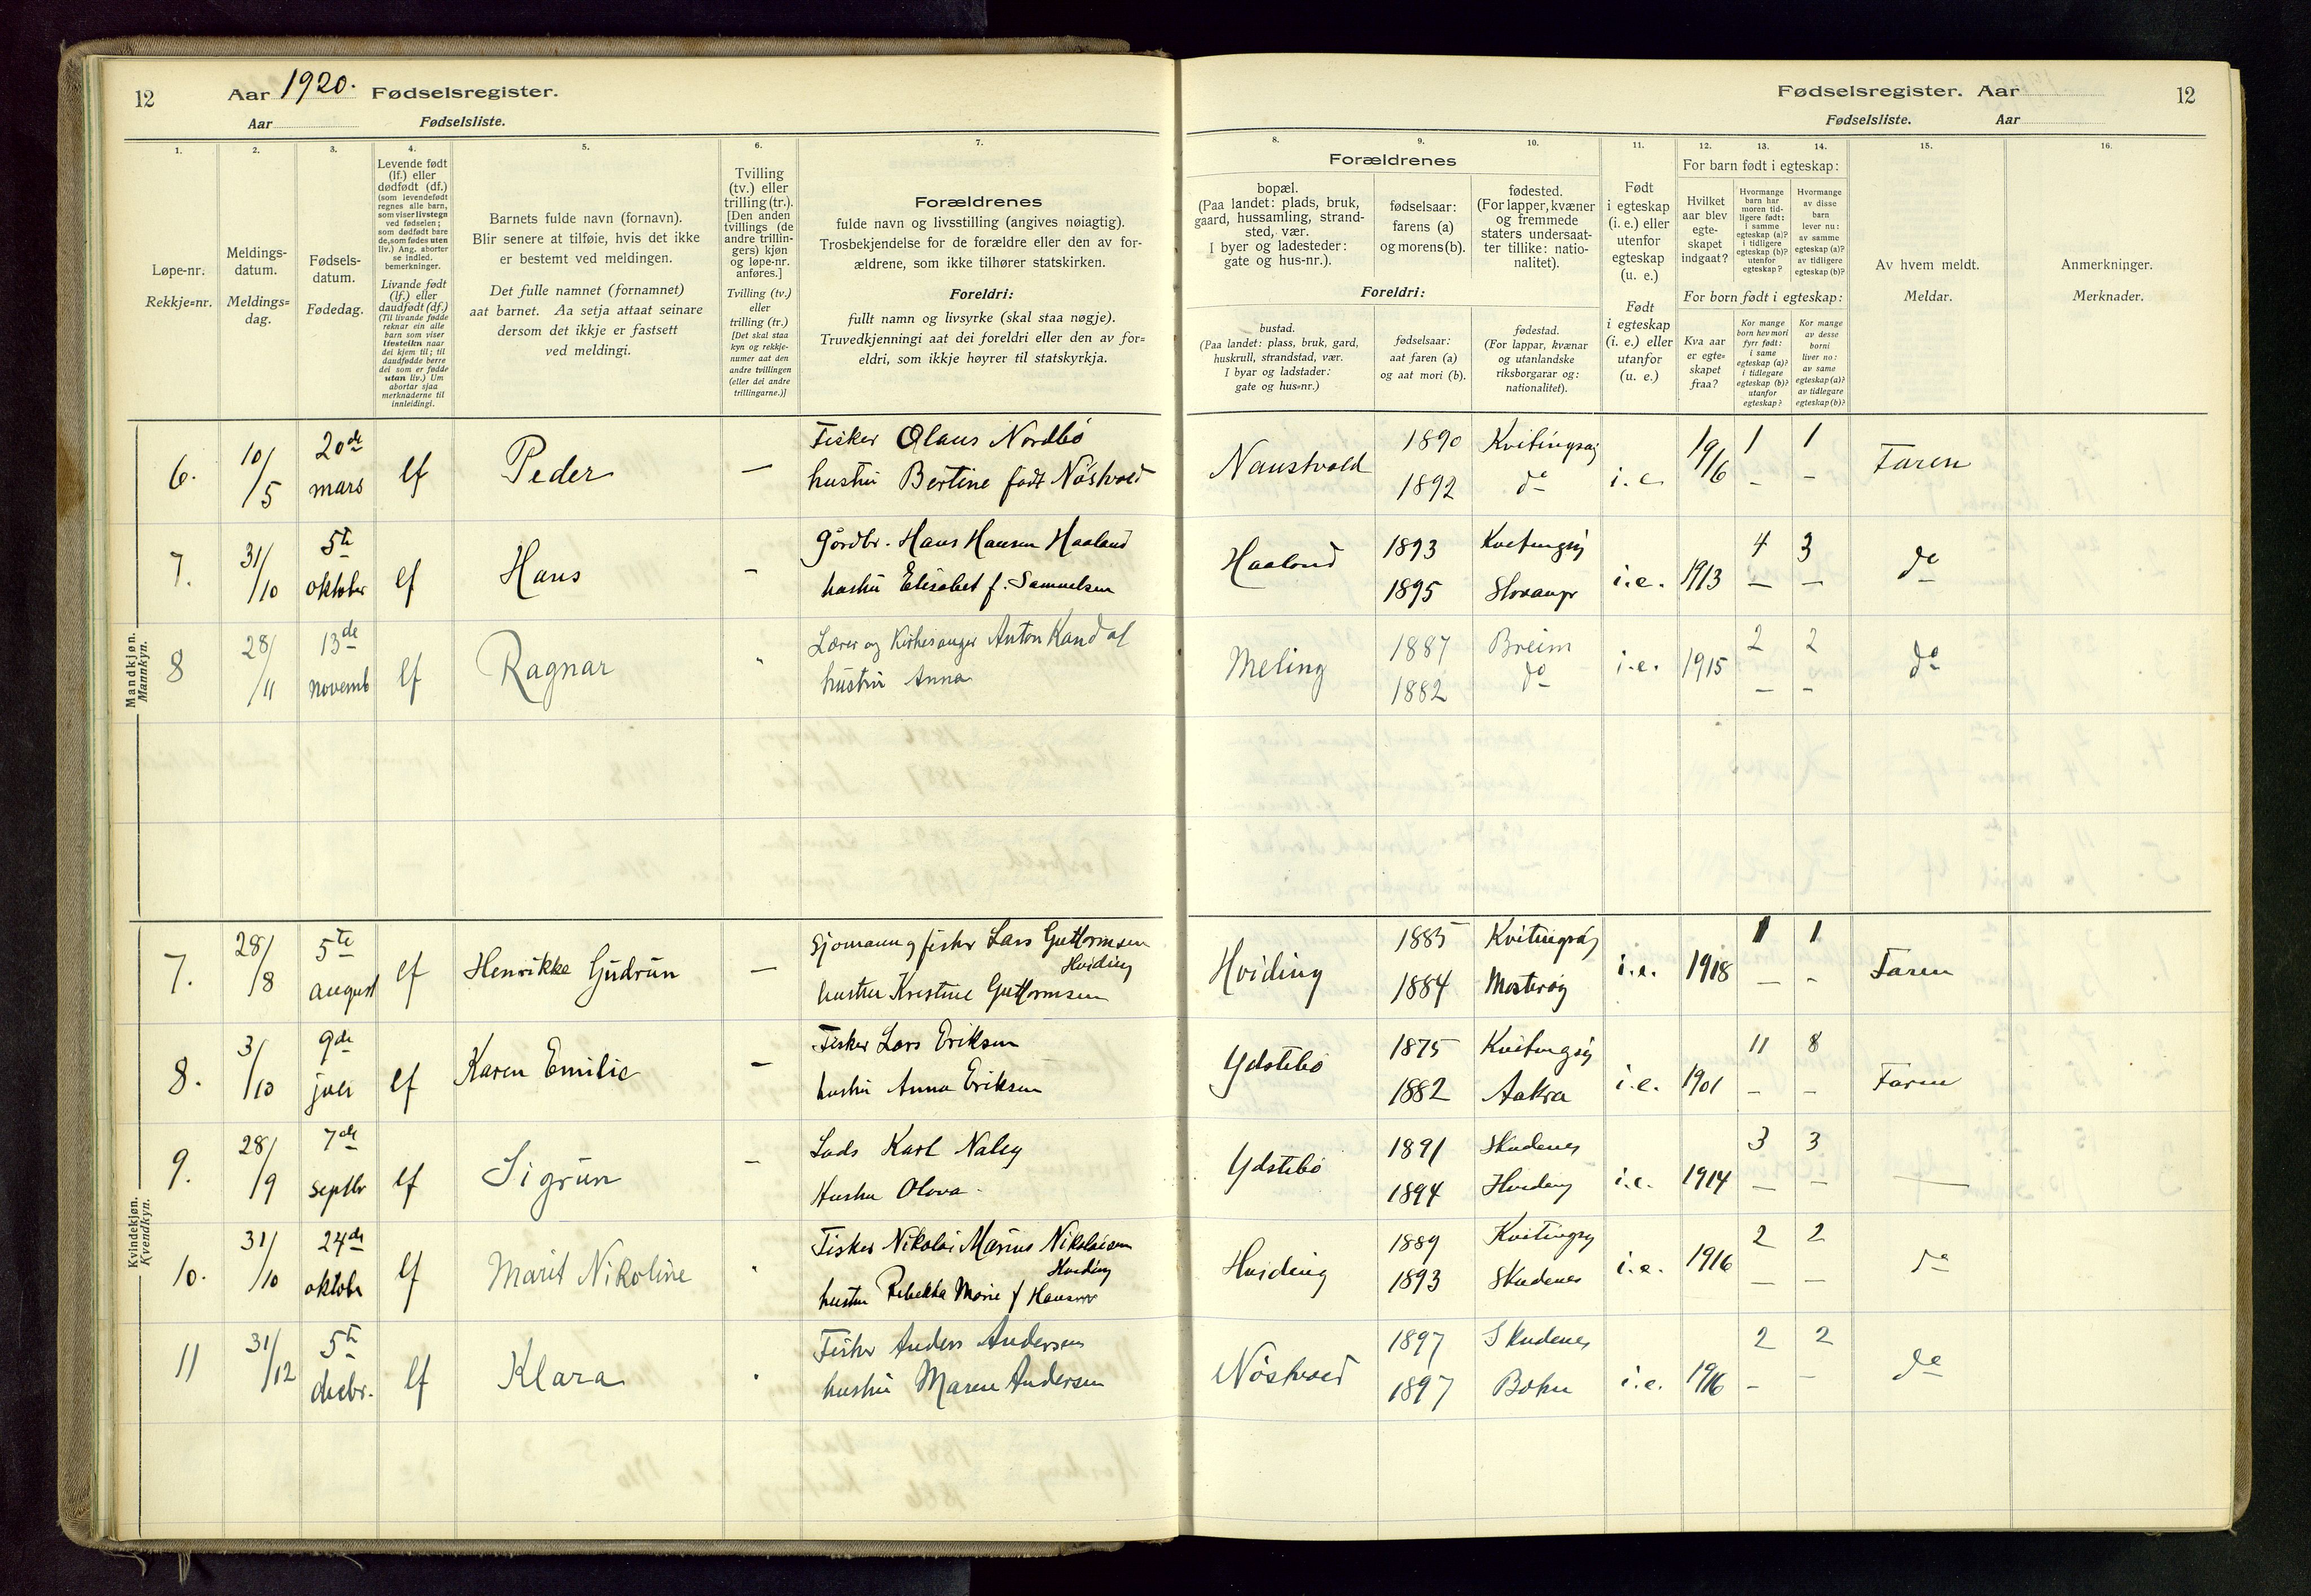 12
Aar 1920. Fødselsregister.
Aar Fødselsliste.
Fødselsregister. Aar
12
Fødselsliste. Aar
1.
Løpe-nr.
Rekkje=nr.
2.
Meldings-
datum.
Meldings=
dag.
3.
Fødsels-
datum.
Fødedag.
4.
Levende født
(lf.) eller
dødfødt (df.)
(som levendefødt
regnes alle barn,
som viser livstegn
ved fødselen;
som dødfødt bare
de, som fødes uten
liv.) Ang. aborter
se indled.
bemerkninger.
Livande født
(lf.) eller
daudfødt (df.)
(Til livande fødde
reknar ein alle
barn som viser
livsteikn naar
dei kjem til; til
daudfødde berre
dei som er fødde
utan liv.) Um
abortar sjaa
merknaderne til
innleidingi.
5.
Barnets fulde navn (fornavn).
Blir senere at tilføie, hvis det ikke
er bestemt ved meldingen.
Det fulle namnet (fornamnet)
aat barnet. Aa setja attaat seinare
dersom det ikkje er fastsett
ved meldingi.
6.
Tvilling
(tv.) eller
trilling (tr.).
[Den anden
tvillings (de
andre trillin-
gers) kjøn
og løpe-nr.
anføres.]
Tvilling (tv.)
eller
trilling (tr.)
[Det skal staa
kyn og rekkje-
numer aat den
andre tvillingen
(eller dei andre
trillingarne.)]
7.
Forældrenes
fulde navn og livsstilling (angives nøiagtig).
Trosbekjendelse for de forældre eller den av for-
ældrene, som ikke tilhører statskirken.
Foreldri:
fullt namn og livsyrke (skal staa nøgje).
Truvedkjenningi aat dei foreldri eller den av for=
eldri, som ikkje høyrer til statskyrkja.
Forældrenes
8.
bopæl.
(Paa landet: plads, bruk,
gaard, hussamling, strand-
sted, vær.
I byer og ladesteder:
gate og hus-nr.).
Foreldri:
bustad.
(Paa landet: plass, bruk, gard,
huskrull, strandstad, vær.
I byar og ladstader:
gate og hus=nr.)
9.
fødselsaar:
farens (a)
og morens (b).
fødselsaar:
aat faren (a)
og aat mori (b).
10.
fødested.
(For lapper, kvæner
og fremmede
staters undersaat-
ter tillike: natio-
nalitet).
fødestad.
(For lappar, kvænar
og utanlandske
riksborgarar og:
nationalitet).
11.
Født
i egteskap
(i. e.) eller
utenfor
egteskap
(u. e.)
Født
i egteskap
(i. e.) eller
utanfor
egteskap
(u. e.)
For barn født i egteskap:
12.
Hvilket
aar blev
egte-
skapet
indgaat?
13.
Hvormange
barn har
moren tid-
ligere født:
i samme
egteskap (a)?
i tidligere
egteskap (b)?
utenfor
egteskap?
14.
Hvormange
av disse
barn
lever nu:
av samme
egteskap (a)?
av tidligere
egteskap (b)?
For born født i egteskap:
Kva aar
er egte=
skapet
fraa?
Kor mange
born hev mori
fyrr født:
i same
egteskap (a)?
i tidlegare
egteskap (b)?
utanfor
egteskap?
Kor mange
av desse
borni
liver no:
av same
egteskap (a)?
av tidlegare
egteskap (b)?
15.
Av hvem meldt.
Meldar.
16.
Anmerkninger.
Merknader.
Mandkjøn.
Mannkyn.
6. 10/5 20de mars lf Peder — Fisker Olaus Nordbö
hustru Bertine født Nöstvold
Naustvold 1890 Kvitingsøy i.e. 19/6 1 1 Faren
1892 do - -
7. 31/10 5te oktober lf Hans - Gårdbr. Hans Hansen Haaland
hustru Elisabet f. Samuelsen
Haaland 1893 Kvitingsøy i.e. 1913 4 3 do
1895 — —
8 28/11 13de novemb lf Ragnar Lærer og Kirkesanger Anton Kandal
hustru Anna
Meling 1887 Breim i.e. 1915 2 2 do
1882 do — -
Kvindekjøn.
Kvendkyn.
7. 28/8 5te august lf Henrikke Gudrun — Sjömann og fisker Lars Guttormsen
Hviding
hustru Kristine Guttormsen
Hviding 1885 Kvitingsøy i.e. 1918 1 1 Faren
1884 Mosterøy — -
8. 3/10 9de lf Karen Emilie — Fisker Lars Eriksen
hustru Anna Eriksen
Ydstebö 1875 Kvitingsøy i.e. 1901 11 8 Faren
1882 Aakra - -
9. 28/9 7de septbr lf Sigrun — Lods Karl Naley
Hustru Olava
Ydstebö 1891 Skudenes i.e. 1914 3 3 —
1894 Hviding — —
10. 31/10 24de oktobr lf Marit Nikoline Fisker Nikolai Marius Nikolaisen
Hviding
hustru Rebekka Marie f Hansen
Hviding 1889 Kvitingsøy i.e. 1916 2 2 do
1893 Skudenes — —
11 31/12 5te decbr. lf Klara Fisker Anders Andersen
hustru Maren Andersen
Nöstvold 1897 Skudenes i.e. 1916 2 2 do
1897 Bokn - -